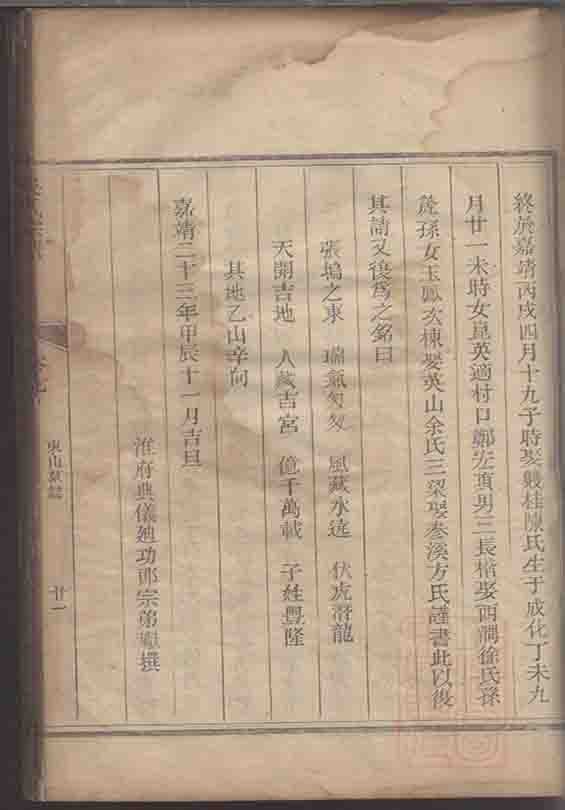 終於嘉靖丙戌四月十九子時娶雙桂陳氏生于成化丁未九
月廿一未時女崑英適村口鄭宏頂男三長楷娶西澗徐氏孫
孫女玉鳳次棟娶英山余氏三梁娶叁溪方氏謹書此以復
其請又後爲之銘曰
張塢之東 瑞氣匆匆 風藏水遶 伏虎潛龍
天開吉地 人藏吉宮 億千萬載 子姓豐隆
其地乙山辛向
嘉靖二十三年甲辰十一月吉旦
淮府典儀廸功郎宗弟撰
東山墓誌
廿一